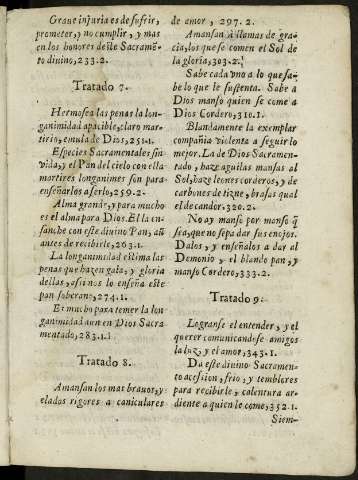 Graue injuria es de sufrir,
prometer, y no cumplir, y mas
en los honores deste Sacramẽ-
to diuino, 233.2.
Tratado 7.
Hermosea las penas la lon-
ganimidad apacible, claro mar-
tirio, emula de Dios, 251.1.
Especies Sacramentales sin
vida, y el Pan del cielo con ella
mortires longanimes son para
enseñarlos a serlo, 259.2.
Alma grande, y para mucho
es el alma para Dios. El la en-
sanche con este diuino Pan, aũ
antes de recibirle, 263.1.
La longanimidad estima las
penas que hazen gala, y gloria
dellas, assi nos lo enseña este
pan soberano, 274.1.
Es mucho para temer la lon
ganimidad aun en Dios Sacra
mentado, 283.1.
Tratado 8.
Amansan los mas brauos, y
elados rigores a caniculares
de amor, 297.2.
Amansan à llamas de gra-
cia, los que se comen el Sol de
la gloria, 303.2.
Sabe cada vno a lo que sa-
be lo que le sustenta. Sabe a
Dios manso quien se come a
Dios Cordero, 310.1.
Blandamente la exemplar
compañia violenta a seguir lo
mejor. La de Dios Sacramen-
tado, haze aguilas mansas al
Sol, haze leones corderos, y de
carbones de tizne, brasas qual
el de candor. 320.2.
No ay manso por manso q̃
sea, que no sepa dar sus enojos.
Dalos, y enseñalos a dar al
Demonio, el blando pan, y
manso Cordero, 333.2.
Tratado 9.
Logranse el entender, y el
querer comunicandose amigos
la luz, y el amor, 343.1.
Da este diuino Sacramen-
to acession, frio, y temblores
para recibirle, calentura ar-
diente a quien le come, 352.1.
Siem-